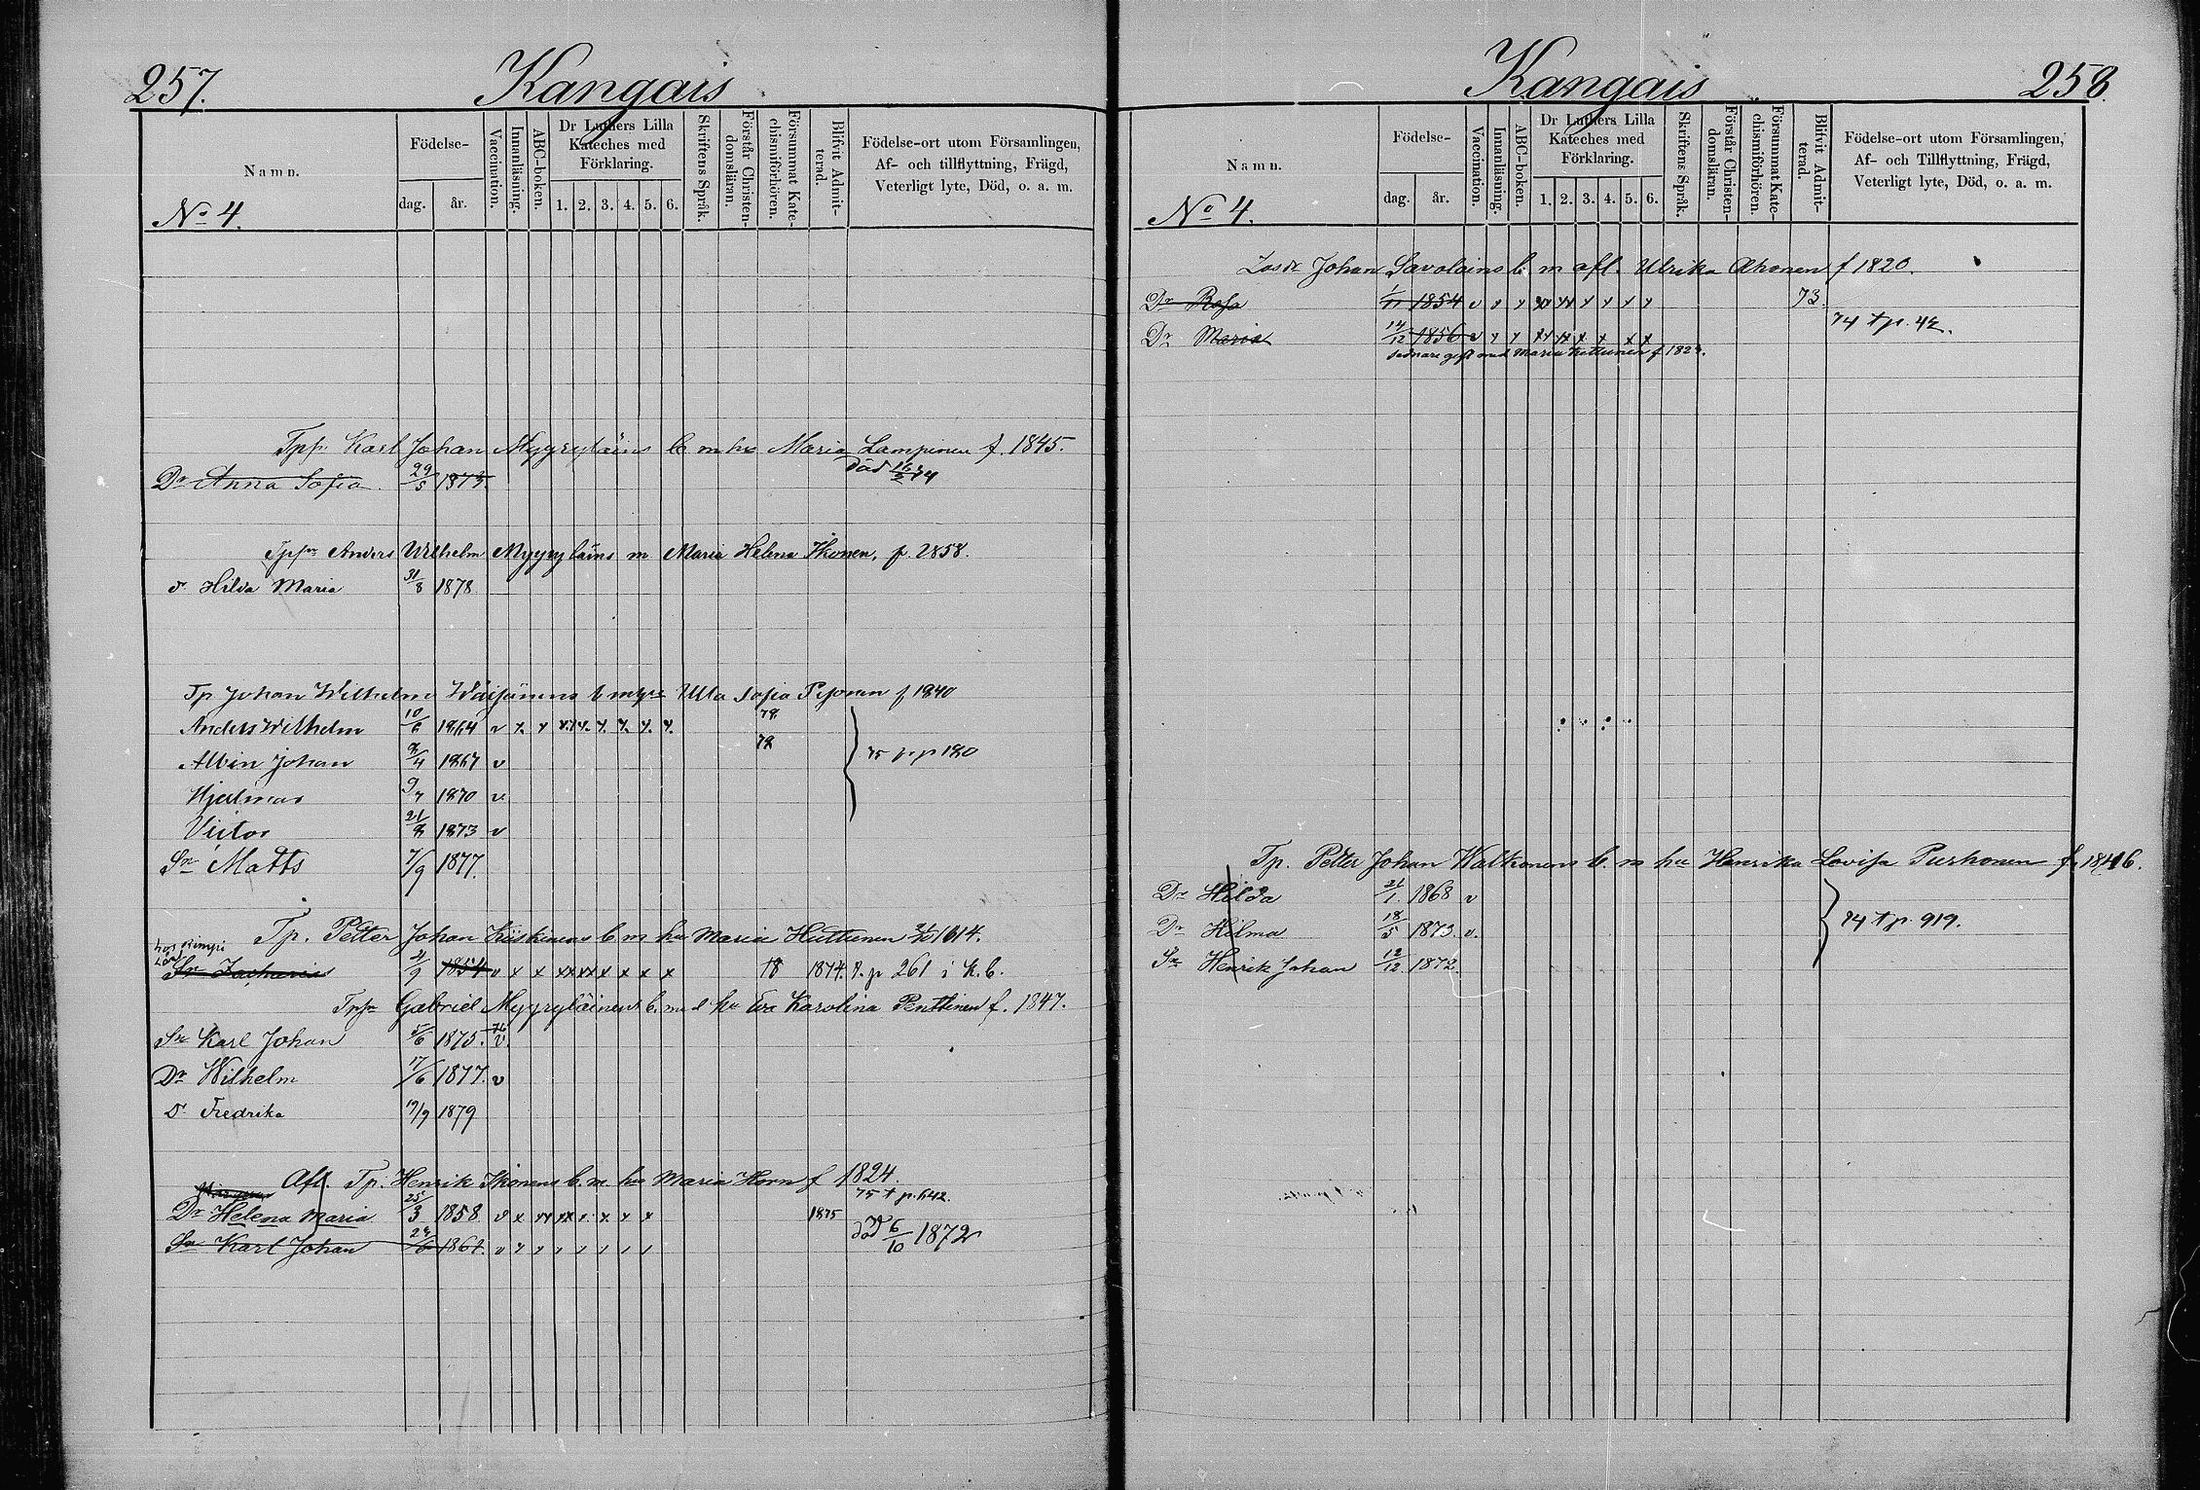 257.
Kangais
Namn.
Födelse-
dag.
år.
Vaccination.
Innanläsning.
ABC-boken.
Dr Luthers Lilla
Kateches med
Förklaring.
1. 2. 3. 4. 5. 6.
Skriftens Språk.
Förstår Christen-
domsläran.
Försummat Kate-
chismiförhören.
Blifvit Admit-
terad.
Födelse-ort utom Församlingen,
Af- och tillflyttning, Frägd,
Veterligt lyte, Död, o. a. m.
No 4.
Karl Johan Myyryläins b. m hu Maria Lampinen f. 1845.
Dr Anna Sofia 29/5 1873. död
Anders Wilhelm Myyryläins m Maria Helena Ikonen, f. 1858.
d. Hilda Maria 31/8 1878
Tp Johan Wilhelm Wäisänens b m Ulla Sofia f 1840
Anders Wilhelm 10/6 1864 v x x 78
Albin Johan 1867 v 78 75 p. p 180
Hjalmar 9/7 1870 v
Victor 21/8 1873 v
Sn Matts 7/9 1877.
Tp. Petter Johan Kiiskinens b. m hu Maria Huttunen
Sn Zacharias 1854 v x x xx xx x x x x 18 1874. p 261 i K. b.
Gabriel Myyryläinens b. m hu Eva Karolina Penttinen f. 1847.
Sn Karl Johan 5/6 1875. v.
Dr Wilhelm 17/6 1877. v
D. Fredrika 19/9 1879
Afl. Tp. Henrik Ikonens b. m hu Maria Horn f 1824.
75 t p. 642.
Dr Helena Maria 25/3 1858 1875
Sn Karl Johan 1861. död 6/10 1872
Kangais
258.
Namn.
Födelse-
dag.
år.
Vaccination.
Innanläsning.
ABC-boken.
Dr Luthers Lilla
Kateches med
Förklaring.
1. 2. 3. 4. 5. 6.
Skriftens Språk.
Förstår Christen-
domsläran.
Försummat Kate-
chismiförhören.
Blifvit Admit-
terad.
Födelse-ort utom Församlingen,
Af- och Tillflyttning, Frägd,
Veterligt lyte, Död, o. a. m.
No 4.
Johan Savolains b. m afl. Ulrika Ahonen f 1820.
Dr Rosa 1/11 1854 v x x xx xx x x x x 73.
Dr Maria 14/12 1856 v x x xx xx x x x x 74 t p. 42.
sednare gift med Maria Kettunen
Tp. Petter Johan Walkonens b. m hu Henrika Lovisa Purhonen f. 1846.
Dr Hilda 21/1. 1868 v
Dr Hilma 18/5 1873. v. 74 t p. 919.
Sn Henrik Johan 12/12 1872.